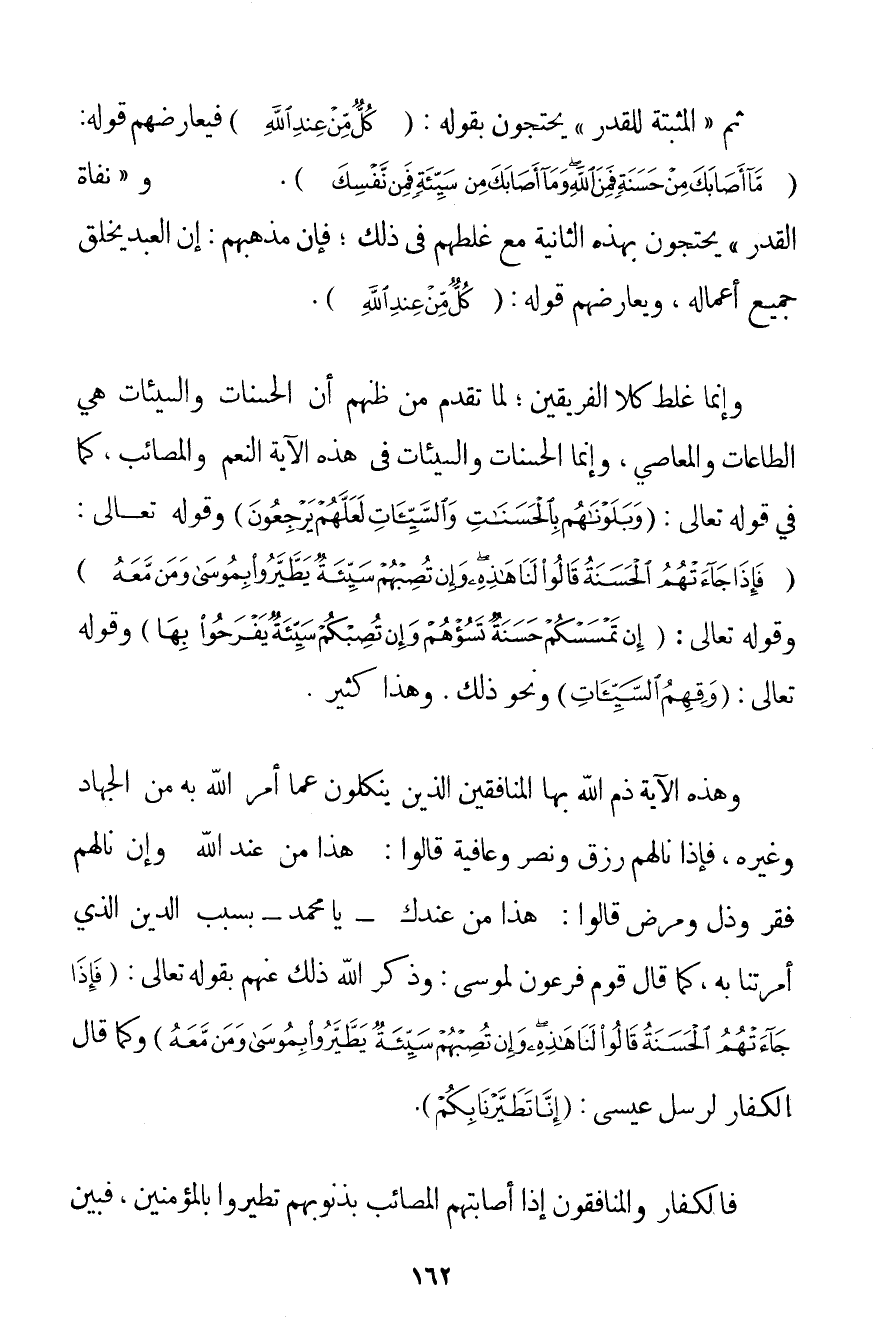 ثم « المثبتة للقدر » يحتجون بقوله : ( كُلٌّ مِّنْ عِندِ ٱللَّهِ ) فيعارضهم قوله:
( مَّآ أَصَابَكَ مِنْ حَسَنَةٍ فَمِنَ ٱللَّهِ ۖ وَمَآ أَصَابَكَ مِن سَيِّئَةٍ فَمِن نَّفْسِكَ ) . و « نفاة
القدر » يحتجون بهذه الثانية مع غلطهم فى ذلك ؛ فإن مذهبهم : إن العبد يخلق
جميع أعماله ، ويعارضهم قوله : ( كُلٌّ مِّنْ عِندِ ٱللَّهِ ) .
وإنما غلط كلا الفريقين ؛ لما تقدم من ظنهم أن الحسنات والسيئات هي
الطاعات والمعاصي ، وإنما الحسنات والسيئات فى هذه الآية النعم والمصائب ، كما
في قوله تعالى : ( وَبَلَوْنَٰهُم بِٱلْحَسَنَٰتِ وَٱلسَّيِّـَٔاتِ لَعَلَّهُمْ يَرْجِعُونَ ) وقوله تعالى :
( فَإِذَا جَآءَتْهُمُ ٱلْحَسَنَةُ قَالُوا۟ لَنَا هَٰذِهِۦ ۖ وَإِن تُصِبْهُمْ سَيِّئَةٌ يَطَّيَّرُوا۟ بِمُوسَىٰ وَمَن مَّعَهُ )
وقوله تعالى : ( إِن تَمْسَسْكُمْ حَسَنَةٌ تَسُؤْهُمْ وَإِن تُصِبْكُمْ سَيِّئَةٌ يَفْرَحُوا۟ بِهَا ) وقوله
تعالى : ( وَقِهِمُ ٱلسَّيِّـَٔاتِ ) ونحو ذلك . وهذا كثير .
وهذه الآية ذم الله بها المنافقين الذين ينكلون عما أمر الله به من الجهاد
وغيره ، فإذا نالهم رزق ونصر وعافية قالوا : هذا من عند الله وإن نالهم
فقر وذل ومرض قالوا : هذا من عندك ــ يا محمد ــ بسبب الدين الذي
أمرتنا به ، كما قال قوم فرعون لموسى : وذكر الله ذلك عنهم بقوله تعالى : ( فَإِذَا
جَآءَتْهُمُ ٱلْحَسَنَةُ قَالُوا۟ لَنَا هَٰذِهِۦ ۖ وَإِن تُصِبْهُمْ سَيِّئَةٌ يَطَّيَّرُوا۟ بِمُوسَىٰ وَمَن مَّعَهُ ) وكما قال
الكفار لرسل عيسى : ( إِنَّا تَطَيَّرْنَا بِكُمْ ) .
فالكفار والمنافقون إذا أصابتهم المصائب بذنوبهم تطيروا بالمؤمنين ، فبين
١٦٢